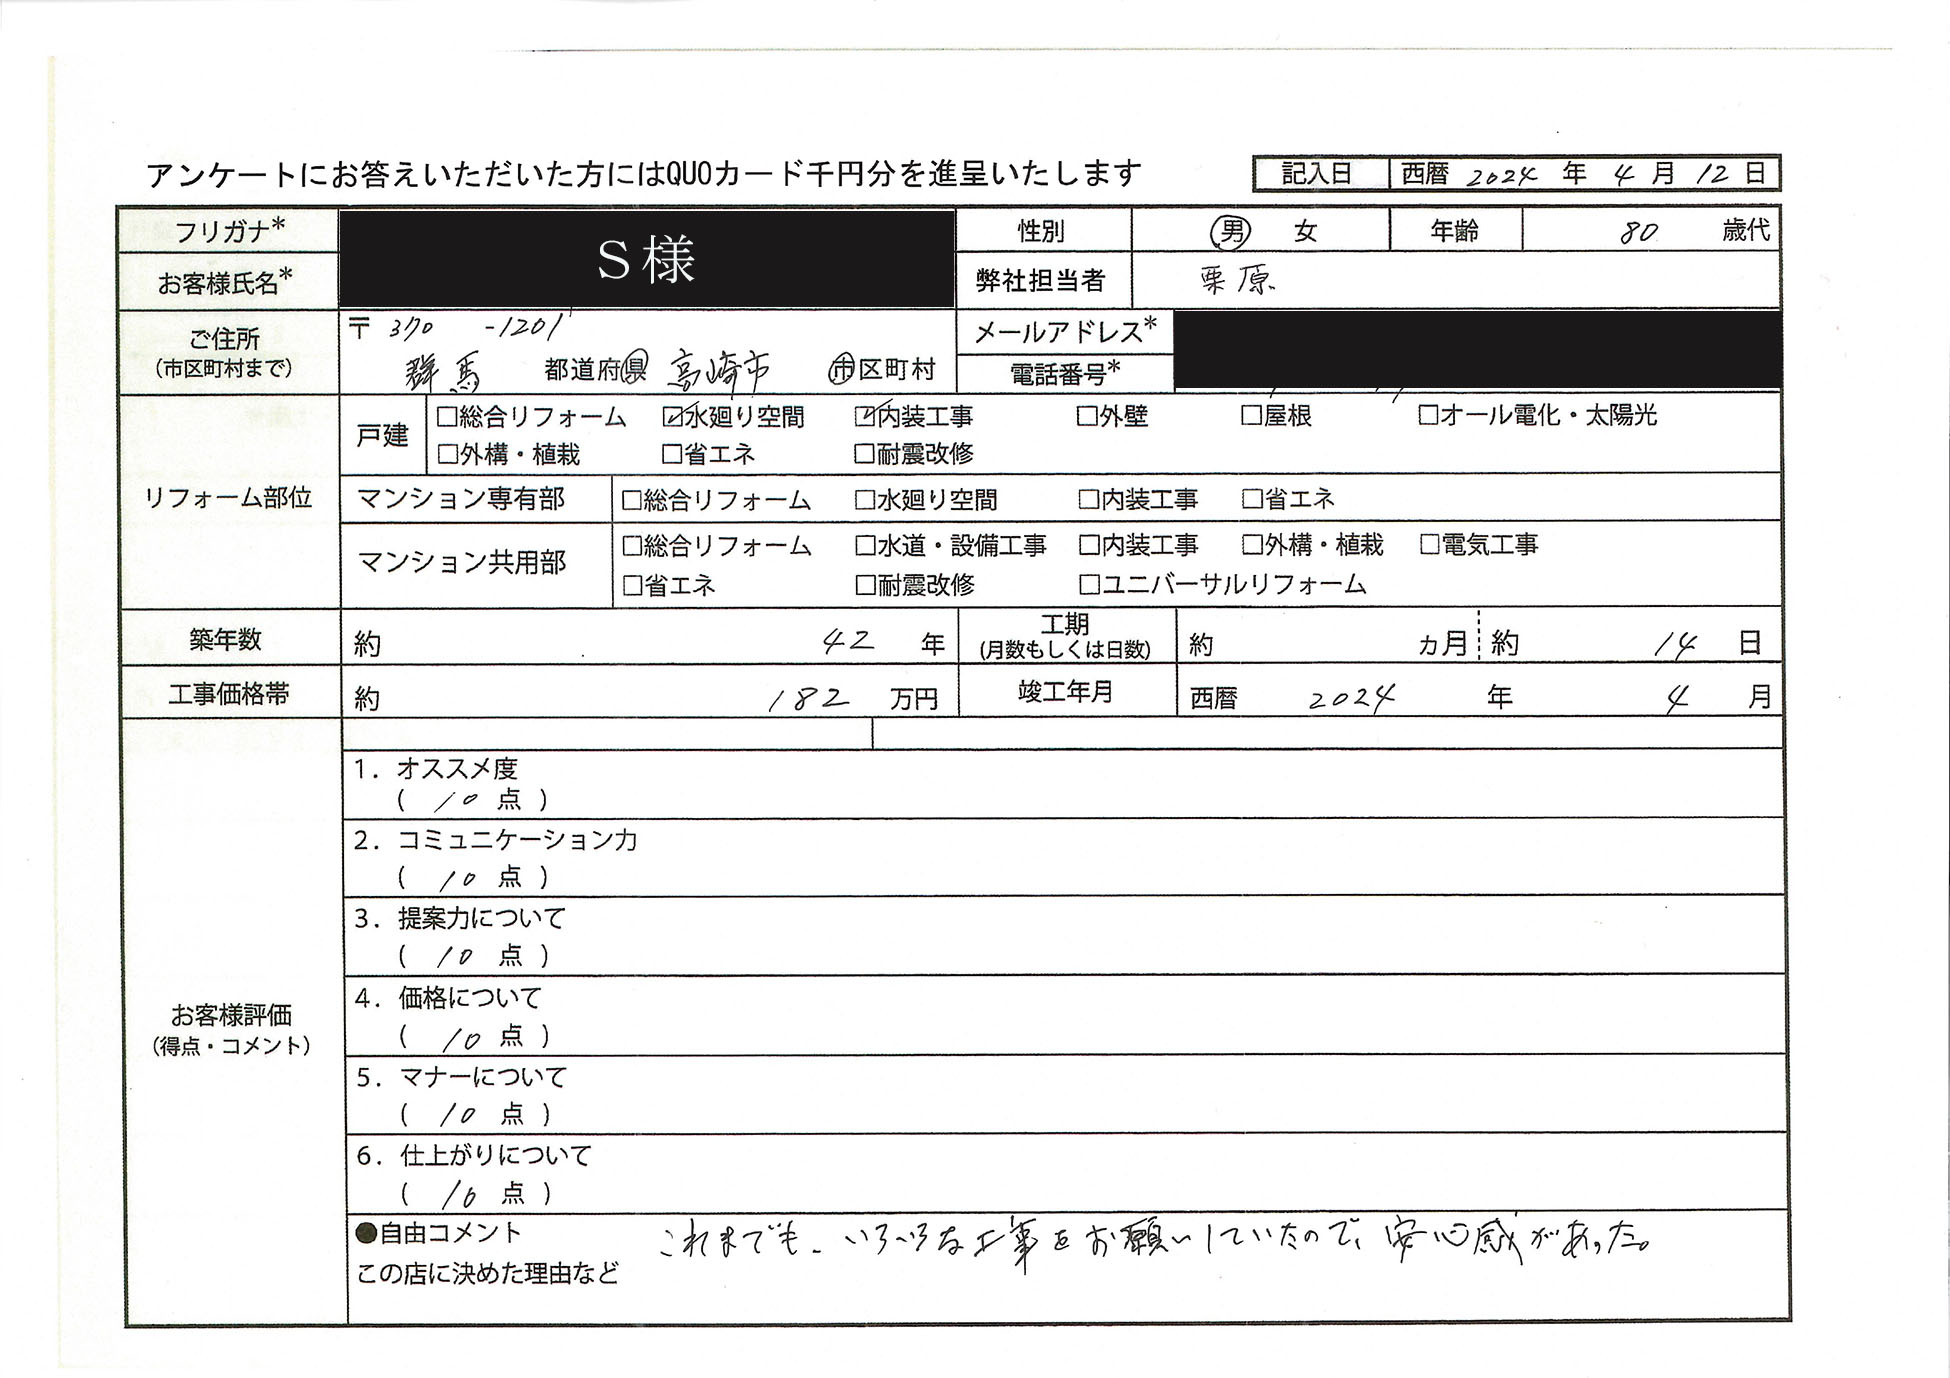 アンケートにお答えいただいた方にはQUOカード千円分を進呈いたします
記入日 西暦 2024 年 4 月 12 日
フリガナ* S様 性別 男 女 年齢 80 歳代
お客様氏名* 弊社担当者 栗原
ご住所 〒 370 -1201 メールアドレス*
(市区町村まで) 群馬 都道府県 高崎市 市区町村 電話番号*
リフォーム部位
戸建 □総合リフォーム ☑水廻り空間 ☑内装工事 □外壁 □屋根 □オール電化・太陽光
□外構・植栽 □省エネ □耐震改修
マンション専有部 □総合リフォーム □水廻り空間 □内装工事 □省エネ
マンション共用部 □総合リフォーム □水道・設備工事 □内装工事 □外構・植栽 □電気工事
□省エネ □耐震改修 □ユニバーサルリフォーム
築年数 約 42 年 工期 (月数もしくは日数) 約 ヵ月 約 14 日
工事価格帯 約 182 万円 竣工年月 西暦 2024 年 4 月
お客様評価
(得点・コメント)
1. オススメ度
( 10 点 )
2. コミュニケーション力
( 10 点 )
3. 提案力について
( 10 点 )
4. 価格について
( 10 点 )
5. マナーについて
( 10 点 )
6. 仕上がりについて
( 10 点 )
●自由コメント これまでも、いろいろな工事をお願いしていたので、安心感があった。
この店に決めた理由など